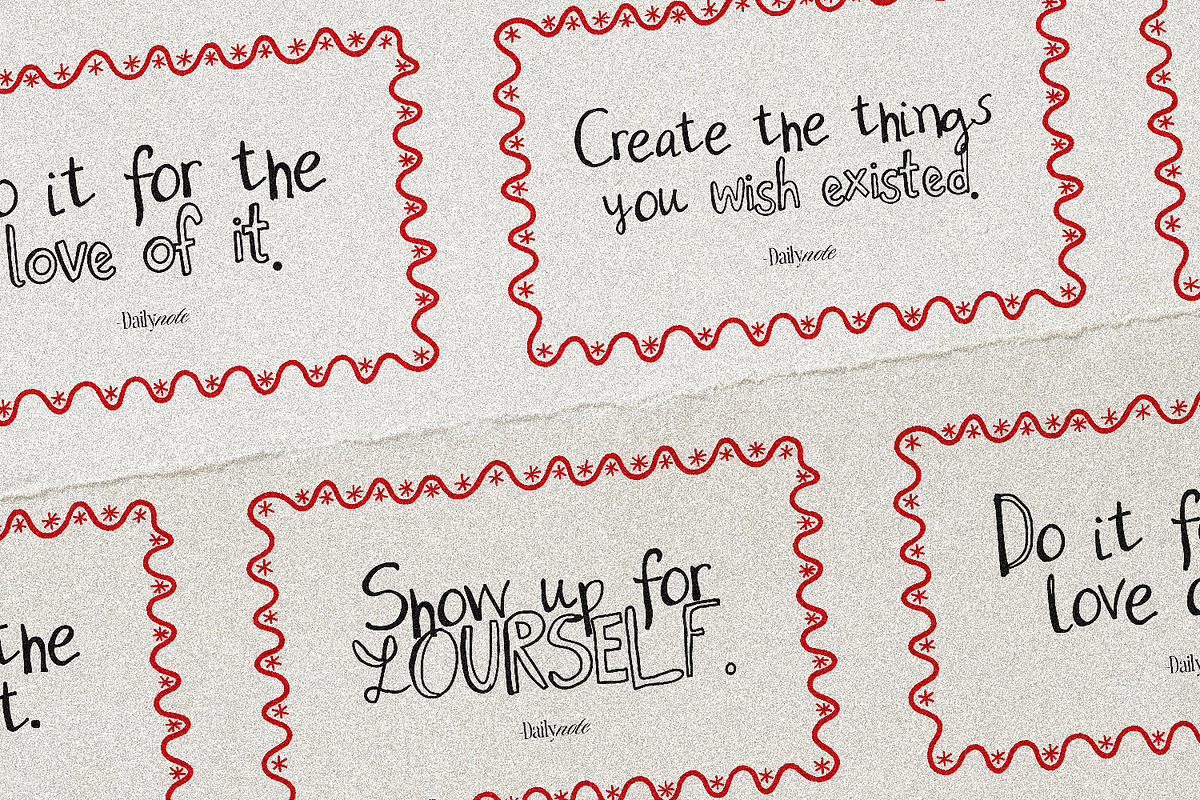 it for the
love of it.
-Dailynote
Create the things
you wish existed.
-Dailynote
the
t.
Show up for
YOURSELF.
-Dailynote
Do it f
love
-Daily